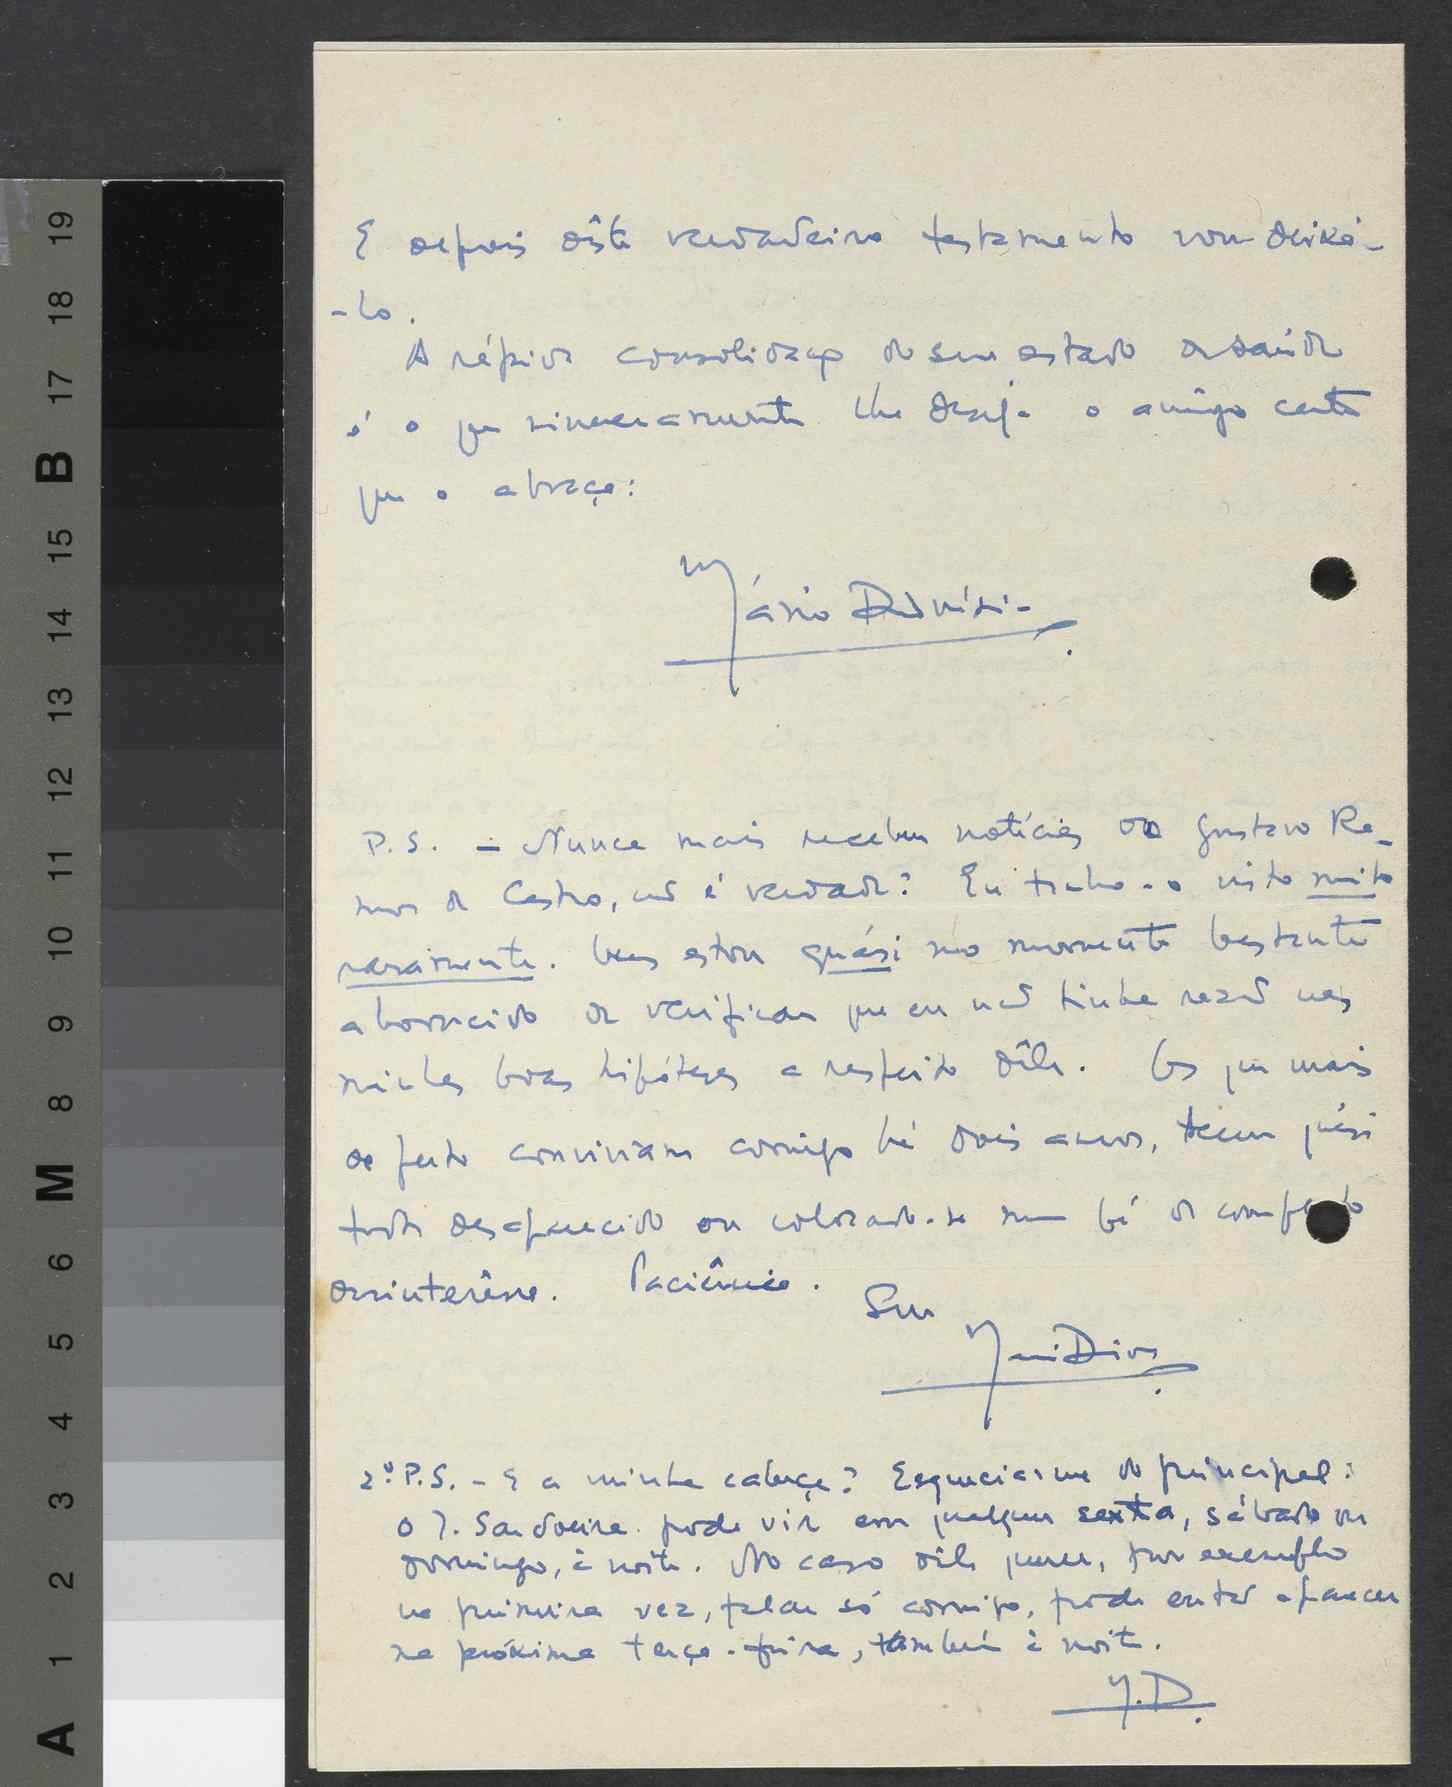 E depois dêste verdadeiro testamento vou deixá-
-lo.
A rápida consolidação do seu estado de saúde
é o que sinceramente lhe deseja o amigo certo
que o abraça:
Mário Dionísio
P.S. - Nunca mais recebeu notícias do Gustavo Re-
de Castro, não é verdade? Eu tenho-o visto muito
raramente. Mas estou quási no momento bastante
aborrecido de verificar que eu não tinha razão nas
minhas boas hipóteses a respeito dêle. Os que mais
de perto conviviam comigo há dois anos, teem quási
todos desaparecido ou colocado-se num pé de completo
desinterêsse. Paciência.
Seu
MárioDionísio
2º P.S. - E a minha cabeça? Esqueci-me do principal:
o J. Sandoeira pode vir em qualquer sexta, sábado ou
domingo, à noite. No caso dêle querer, por exemplo
na primeira vez, falar só comigo, pode então aparecer
na próxima terça-feira, também à noite.
M.D.
A 1 2 3 4 5 6 M 8 9 10 11 12 13 14 15 B 17 18 19